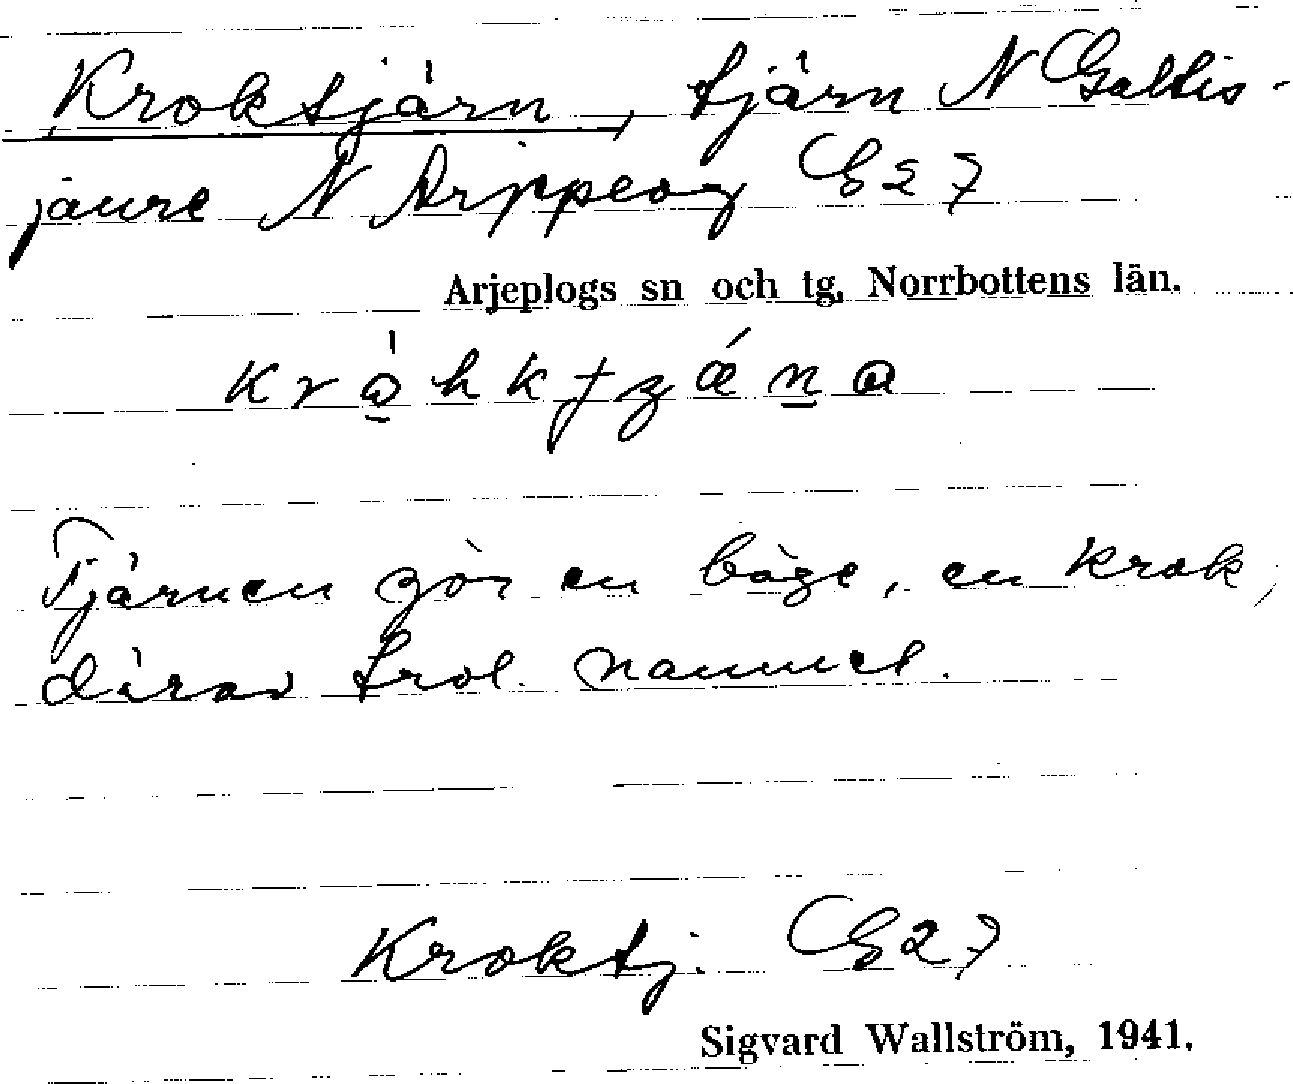 Kroktjärn, tjärn N Galtis-
jaure N Arjeplog E27
Arjeplogs sn och tg, Norrbottens län.
Tjärnen gör en båge, en krok,
därav trol. namnet.
Kroktj. E27
Sigvard Wallström, 1941.